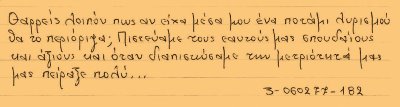 Θαρρείς λοιπόν πως αν είχα μέσα μου ένα ποτάμι λυρισμού
θα το περιόριζα; Πιστεύαμε τους εαυτούς μας σπουδαίους
και άξιους και όταν διαπιστώσαμε την μετριότητά μας
μας πείραξε πολύ...
3-060277-182